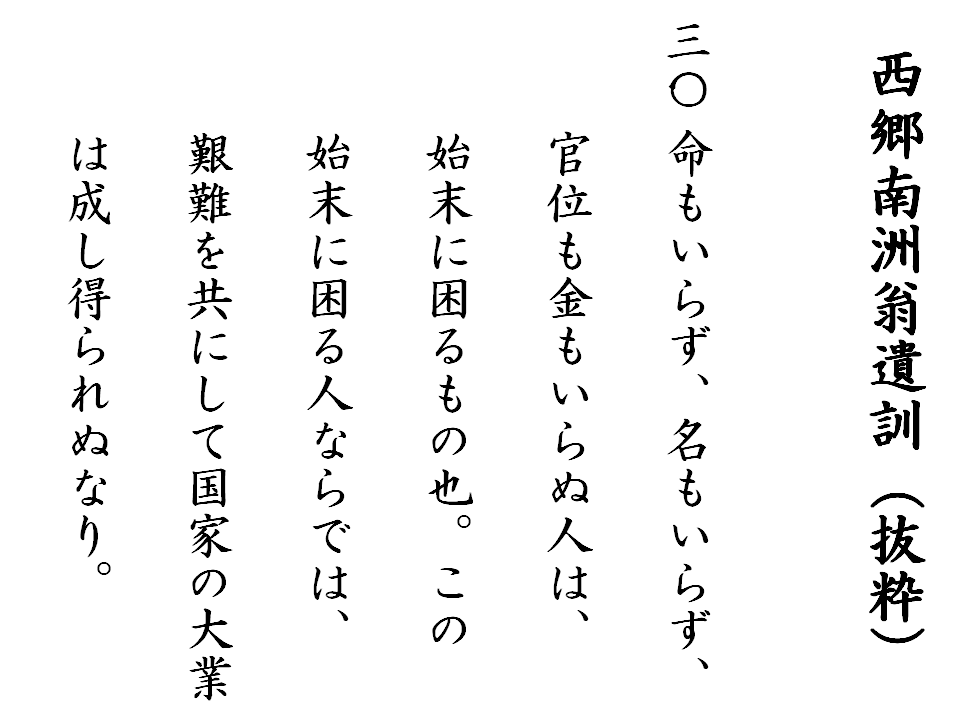 西郷南洲翁遺訓（抜粋）
三〇 命もいらず、名もいらず、
官位も金もいらぬ人は、
始末に困るもの也。この
始末に困る人ならでは、
艱難を共にして国家の大業
は成し得られぬなり。